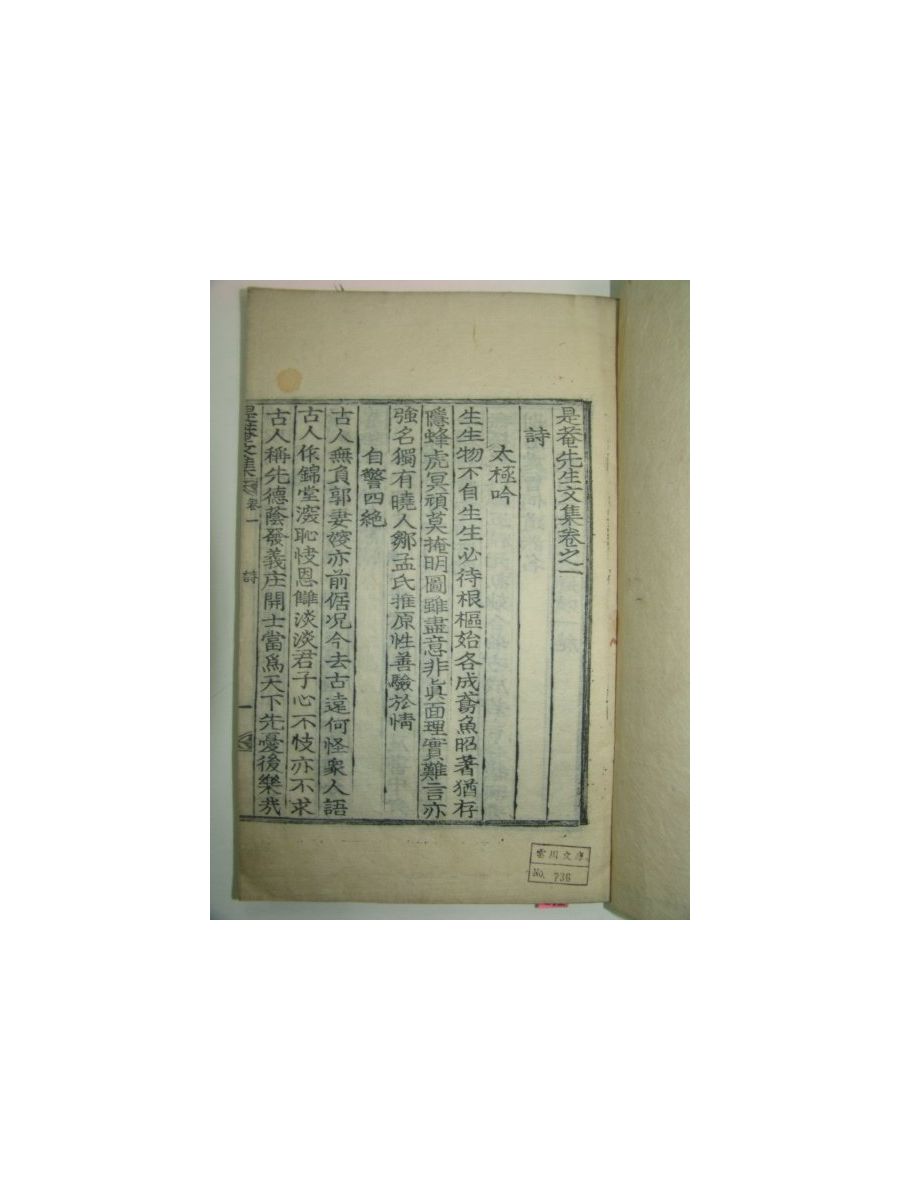 是菴先生文集卷之一
詩
太極吟
生生物不自生生必待根樞始各成鳶魚昭著猶存
隱蜂虎冥頑莫掩明圖雖盡意非眞面理實難言亦
強名獨有曉人鄒孟氏推原性善驗於情
自警四絶
古人無負郭妻嫂亦前倨况今去古遠何怪衆人語
古人作錦堂深恥快恩讎淡淡君子心不忮亦不求
古人稱先德蔭發義庄開士當爲天下先憂後樂哉
是菴文集 卷一 詩 一
雲川文庫
No. 736